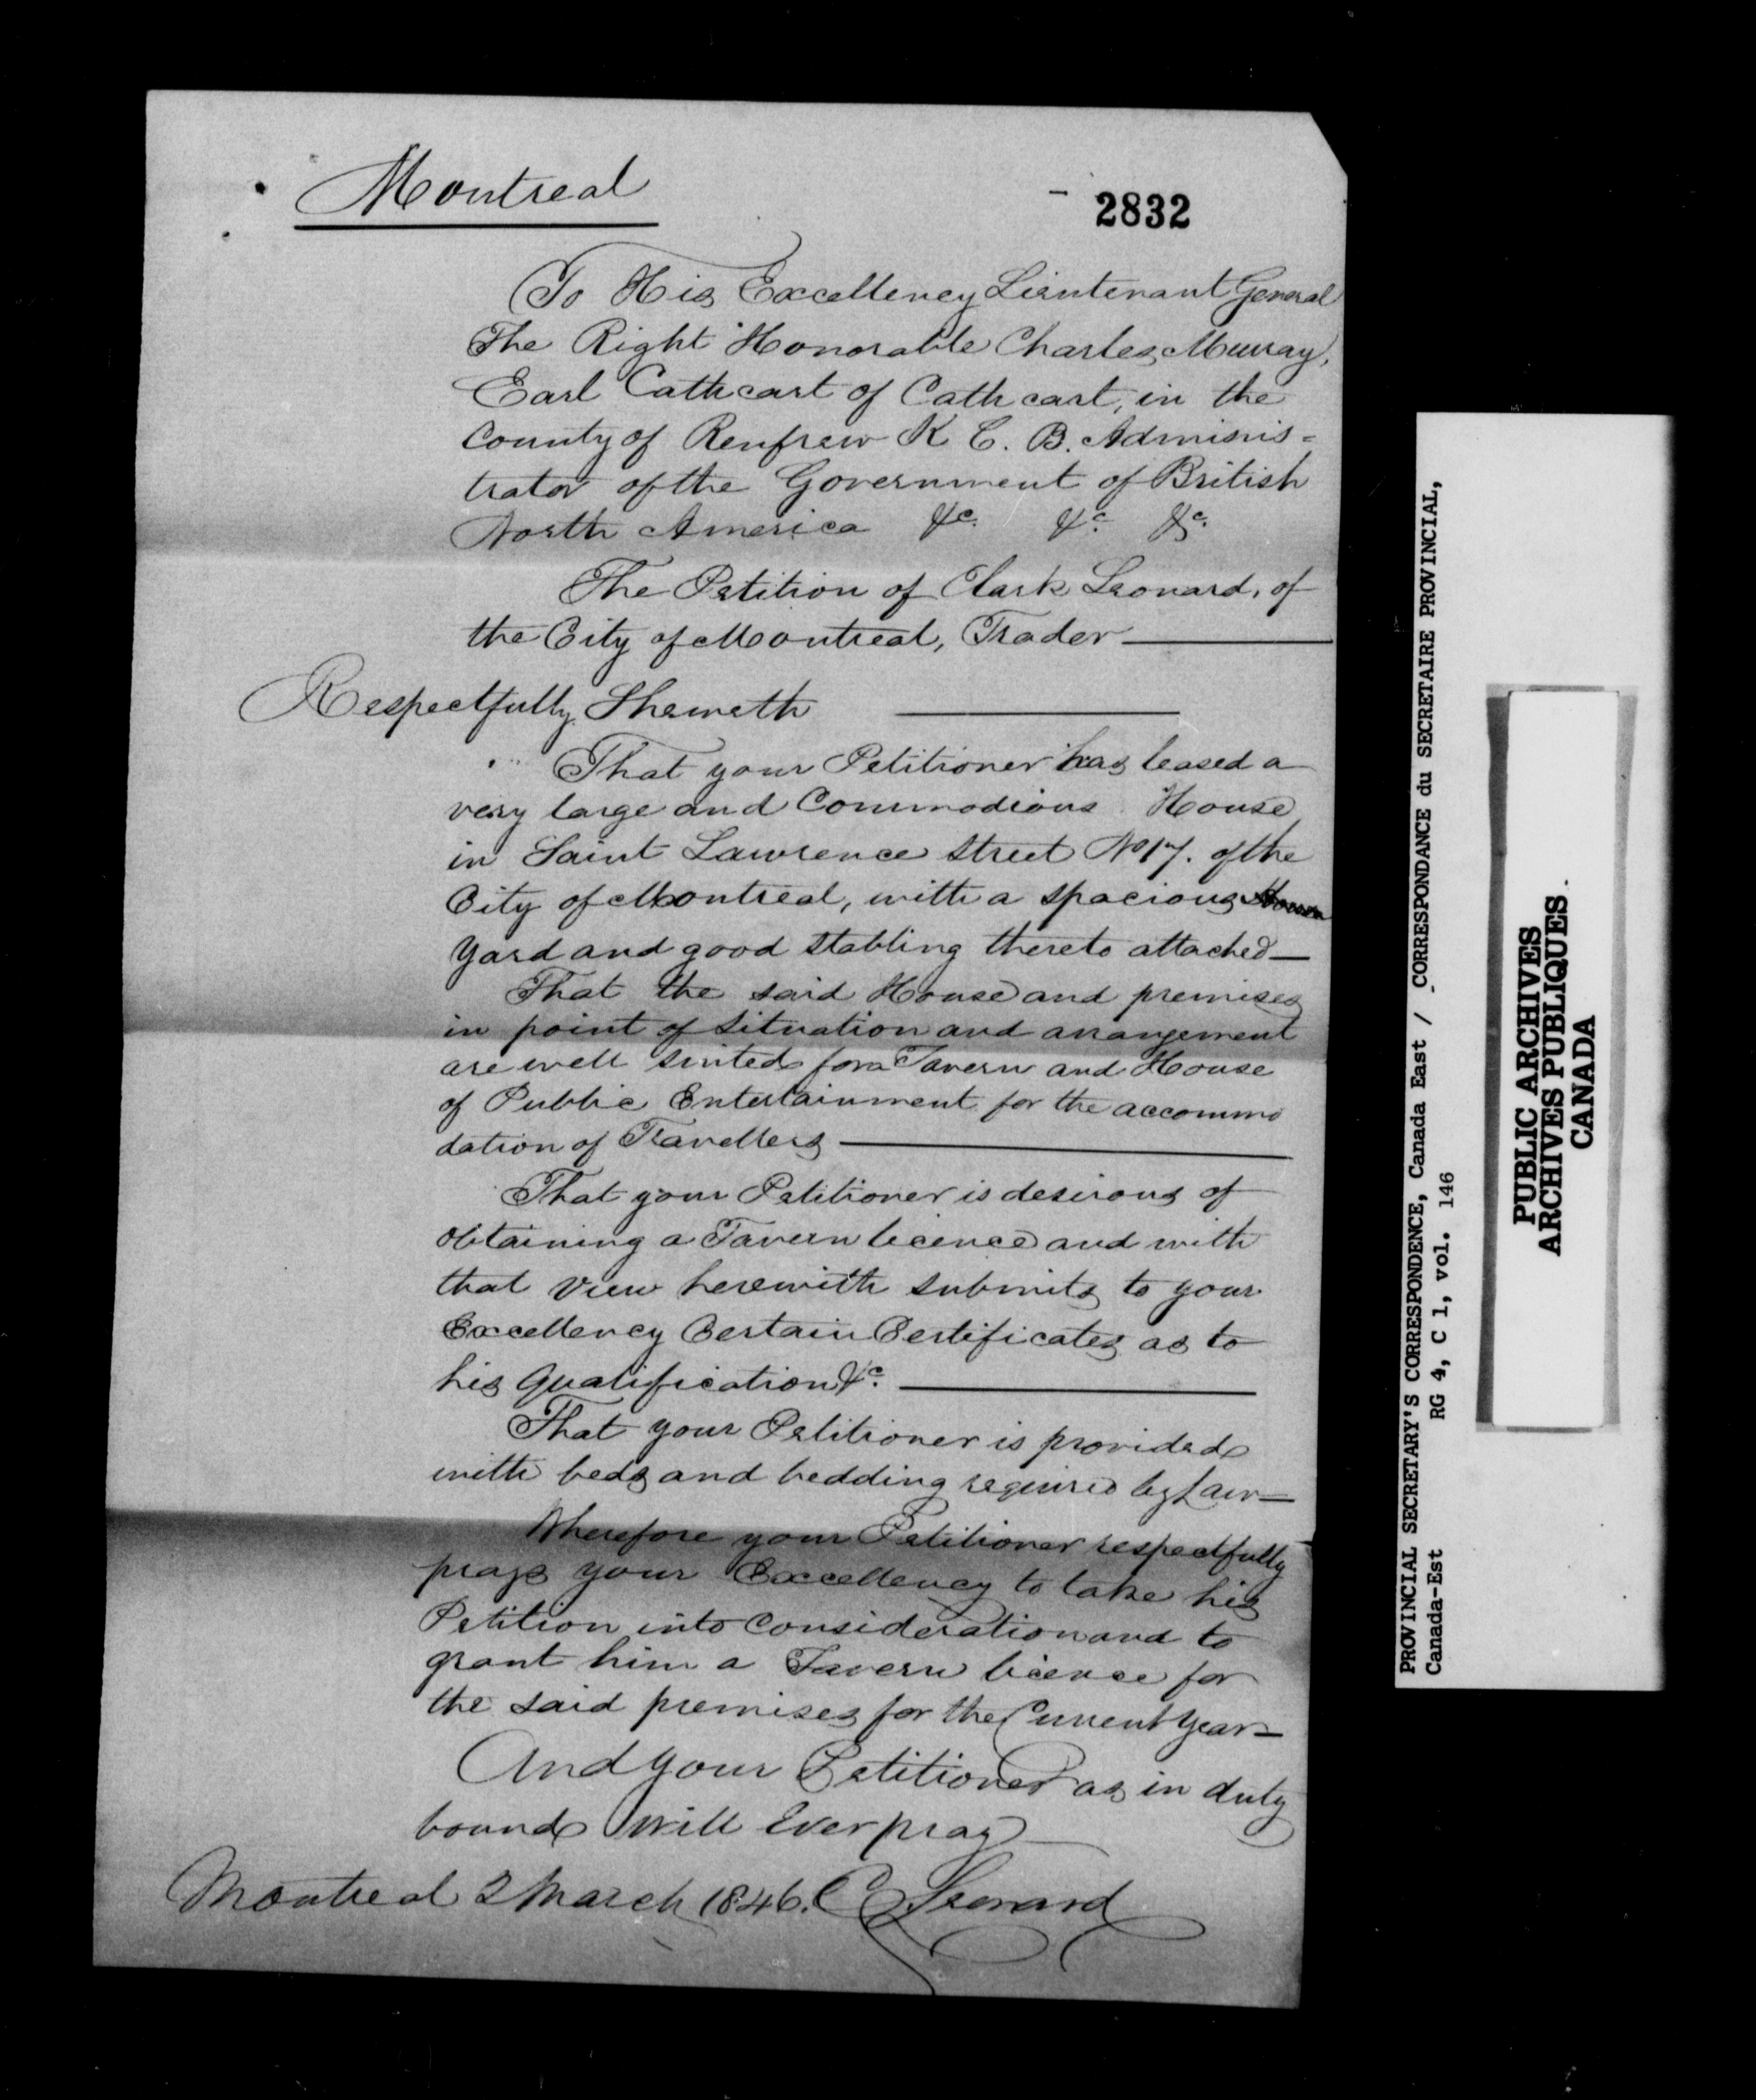 Montreal
2832
To His Excellency Lieutenant General
The Right Honorable Charles Murray,
Earl Cathcart of Cathcart, in the
County of Renfrew K C. B. Adminis=
trator of the Government of British
North America &c. &c. &c.
The Petition of Clark Leonard, of
the City of Montreal, Trader
Respectfully Sheweth
That your Petitioner has leased a
very large and Commodious House
in Saint Lawrence Street No 17. of the
City of Montreal, with a spacious
yard and good Stabling thereto attached—
That the said House and premises
in point of situation and arrangement
are well suited for a Tavern and House
of Public Entertainment for the accommo
dation of Travellers
That your Petitioner is desirous of
obtaining a Tavern licence and with
that view herewith submits to your
Excellency Certain Certificates as to
his Qualification &c.
That your Petitioner is provided
with beds and bedding required by Law—
Wherefore your Petitioner respectfully
prays your Excellency to take his
Petition into Consideration and to
grant him a Tavern licence for
the said premises for the Current Year—
And your Petitioner as in duty
bound will Ever pray
Montreal 2 March 1846. C Leonard
PROVINCIAL SECRETARY'S CORRESPONDENCE, Canada East / CORRESPONDANCE du SECRETAIRE PROVINCIAL,
Canada-Est RG 4, C 1, vol. 146
PUBLIC ARCHIVES
ARCHIVES PUBLIQUES
CANADA